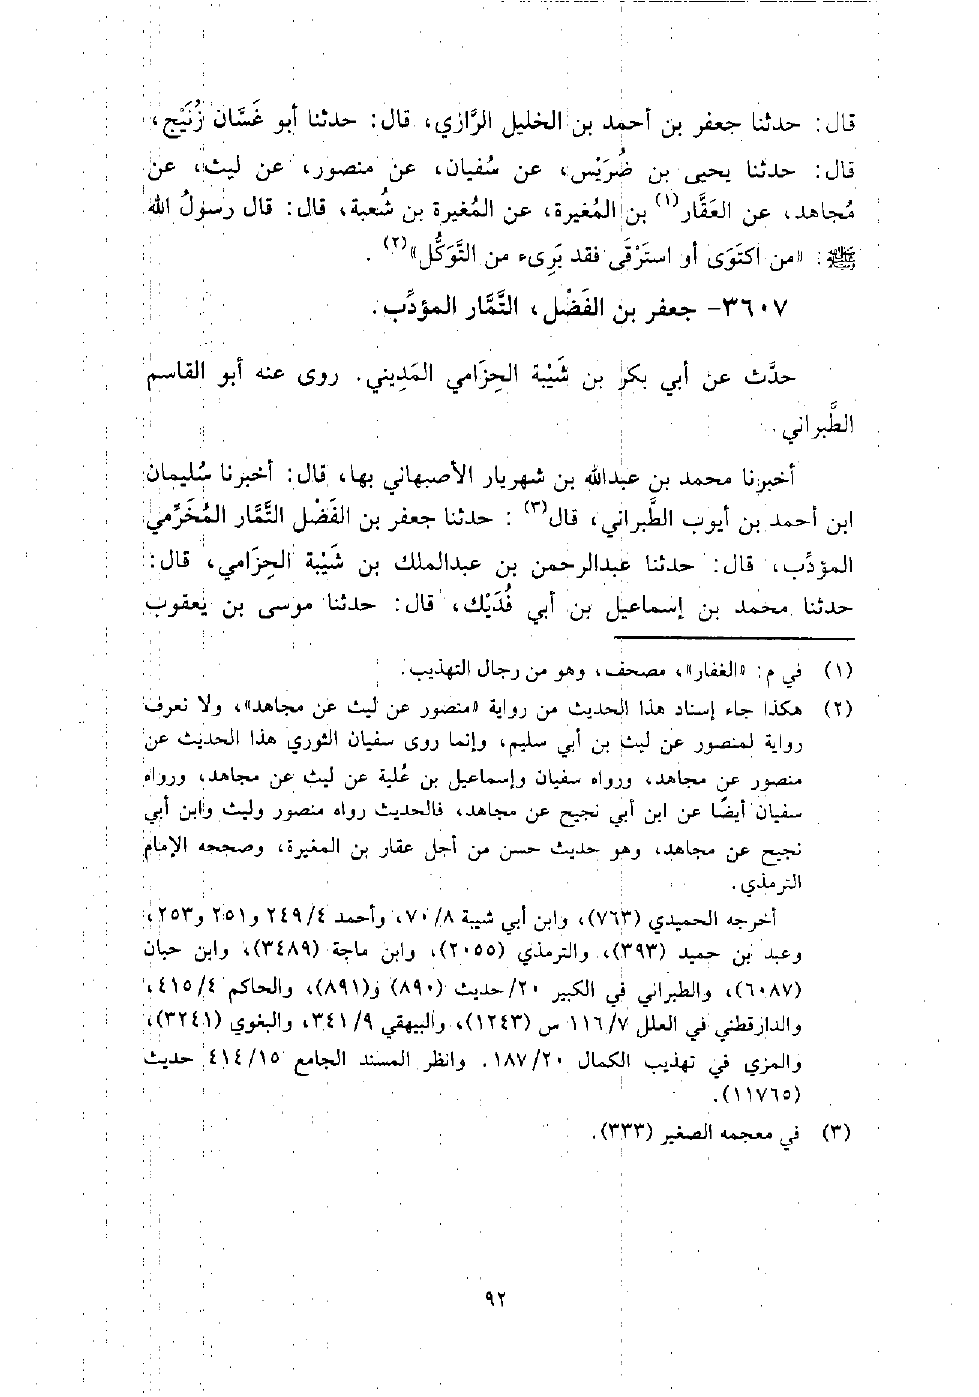 قال: حدثنا جعفر بن أحمد بن الخليل الرَّازي، قال: حدثنا أبو غَسَّان زُنَيْج،
قال: حدثنا يحيى بن ضُرَيْس، عن سُفيان، عن منصور، عن ليث، عن
مُجاهد، عن العَقَّار(١) بن المُغيرة، عن المُغيرة بن شُعبة، قال: قال رسولُ الله
ﷺ: «من اكتَوَى أو استَرْقَى فقد بَرِىء من التَّوَكُّل»(٢).
٣٦٠٧- جعفر بن الفَضْل، التَّمَّار المؤدِّب.
حدَّث عن أبي بكر بن شَيْبة الحِزَامي المَدِيني. روى عنه أبو القاسم
الطَّبراني.
أخبرنا محمد بن عبدالله بن شهريار الأصبهاني بها، قال: أخبرنا سُليمان
ابن أحمد بن أيوب الطَّبراني، قال(٣): حدثنا جعفر بن الفَضْل التَّمَّار المُخَرِّمي
المؤدِّب، قال: حدثنا عبدالرحمن بن عبدالملك بن شَيْبة الحِزَامي، قال:
حدثنا محمد بن إسماعيل بن أبي فُدَيْك، قال: حدثنا موسى بن يعقوب
(١) في م: «الغفار»، مصحف، وهو من رجال التهذيب.
(٢) هكذا جاء إسناد هذا الحديث من رواية «منصور عن ليث عن مجاهد»، ولا نعرف
رواية لمنصور عن ليث بن أبي سليم، وإنما روى سفيان الثوري هذا الحديث عن
منصور عن مجاهد، ورواه سفيان وإسماعيل بن عُلية عن ليث عن مجاهد، ورواه
سفيان أيضًا عن ابن أبي نجيح عن مجاهد، فالحديث رواه منصور وليث وابن أبي
نجيح عن مجاهد، وهو حديث حسن من أجل عقار بن المغيرة، وصححه الإمام
الترمذي.
أخرجه الحميدي (٧٦٣)، وابن أبي شيبة ٨/ ٧٠، وأحمد ٤/ ٢٤٩ و٢٥١ و٢٥٣،
وعبد بن حميد (٣٩٣)، والترمذي (٢٠٥٥)، وابن ماجة (٣٤٨٩)، وابن حبان
(٦٠٨٧)، والطبراني في الكبير ٢٠/حديث (٨٩٠) و(٨٩١)، والحاكم ٤/ ٤١٥،
والدارقطني في العلل ٧/ ١١٦ س (١٢٤٣)، والبيهقي ٩/ ٣٤١، والبغوي (٣٢٤١)،
والمزي في تهذيب الكمال ٢٠/ ١٨٧. وانظر المسند الجامع ١٥/ ٤١٤ حديث
(١١٧٦٥).
(٣) في معجمه الصغير (٣٣٣).
٩٢